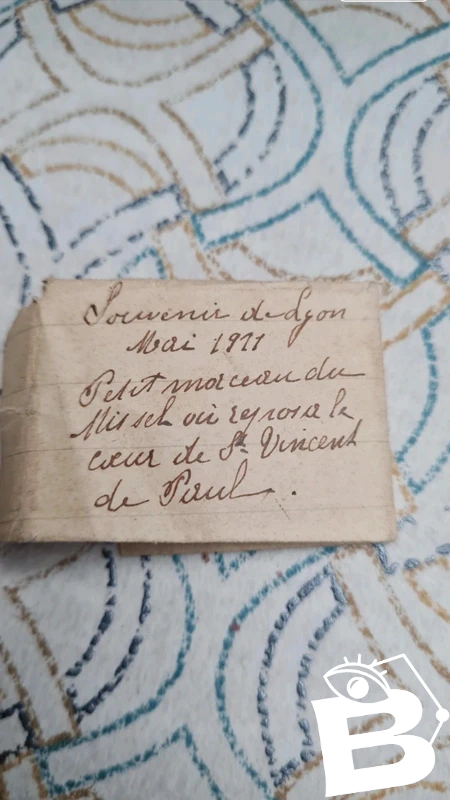 Souvenir de Lyon
Mai 1911
Petit morceau du
Missel où reposa le
cœur de St Vincent
de Paul.
B